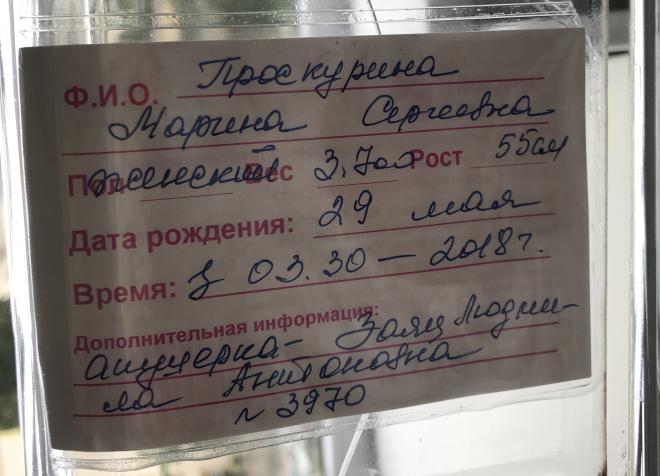 Ф.И.О. Проскурина
Марина Сергеевна
Пол женский Вес 3.700 Рост 55см
Дата рождения: 29 мая
Время: 03.30 — 2018г.
Дополнительная информация:
акушерка - Заяц Людми-
ла Антоновна
№ 3970